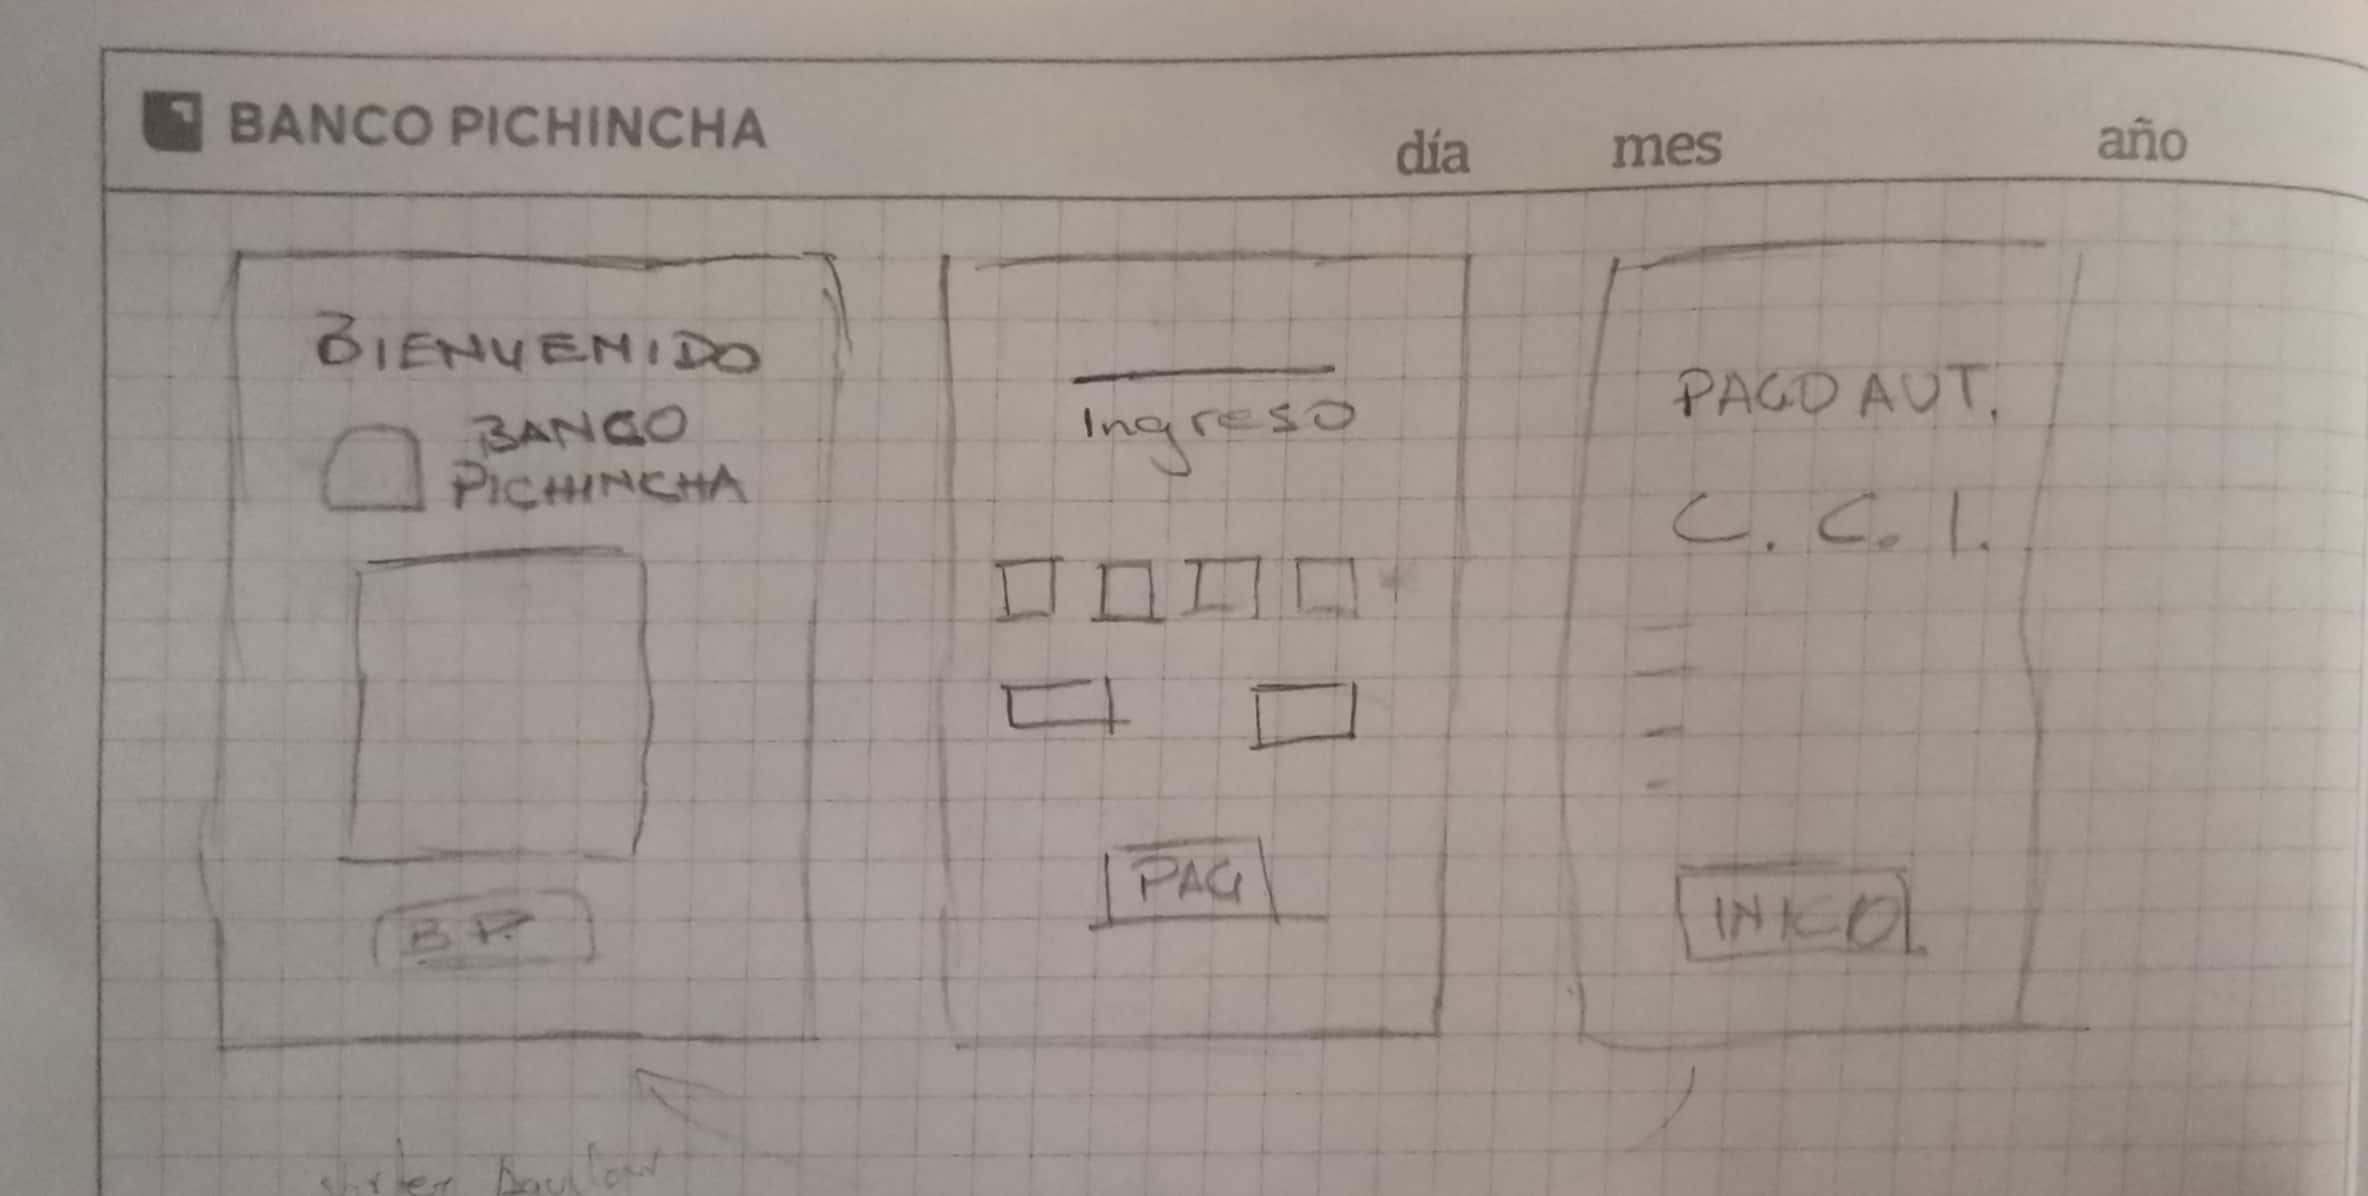 BANCO PICHINCHA
día mes año
BIENVENIDO
BANCO
PICHINCHA
B.P.
Ingreso
PAG
PAGO AUT.
C. C. I.
INICO